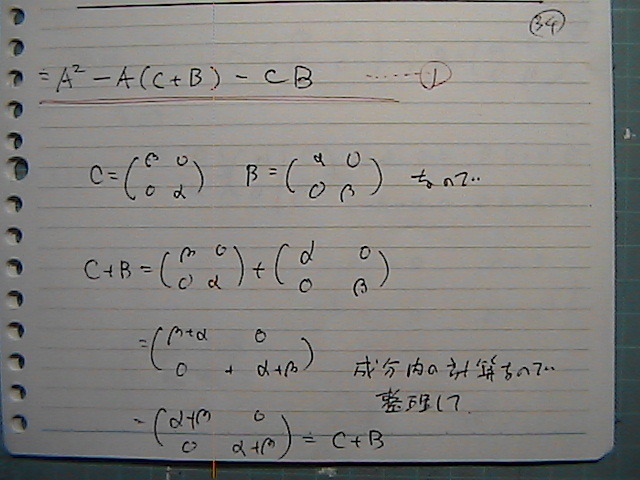 34
= A² − A(C+B) − CB ‥‥‥ ①
C = (β 0 0 α) B = (α 0 0 β) なので‥
C+B = (β 0 0 α) + (α 0 0 β)
= (β+α 0 0 + α+β) 成分内の計算なので‥
整理して
= (α+β 0 0 α+β) = C+B